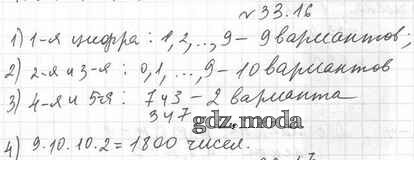 № 33.16
1) 1-я цифра : 1, 2, .., 9 - 9 вариантов;
2) 2-я и 3-я : 0,1, ..., 9 - 10 вариантов
3) 4-я и 5-я : 7 и 3 - 2 варианта
3 и 7
gdz.moda
4) 9.10.10.2 = 1800 чисел.